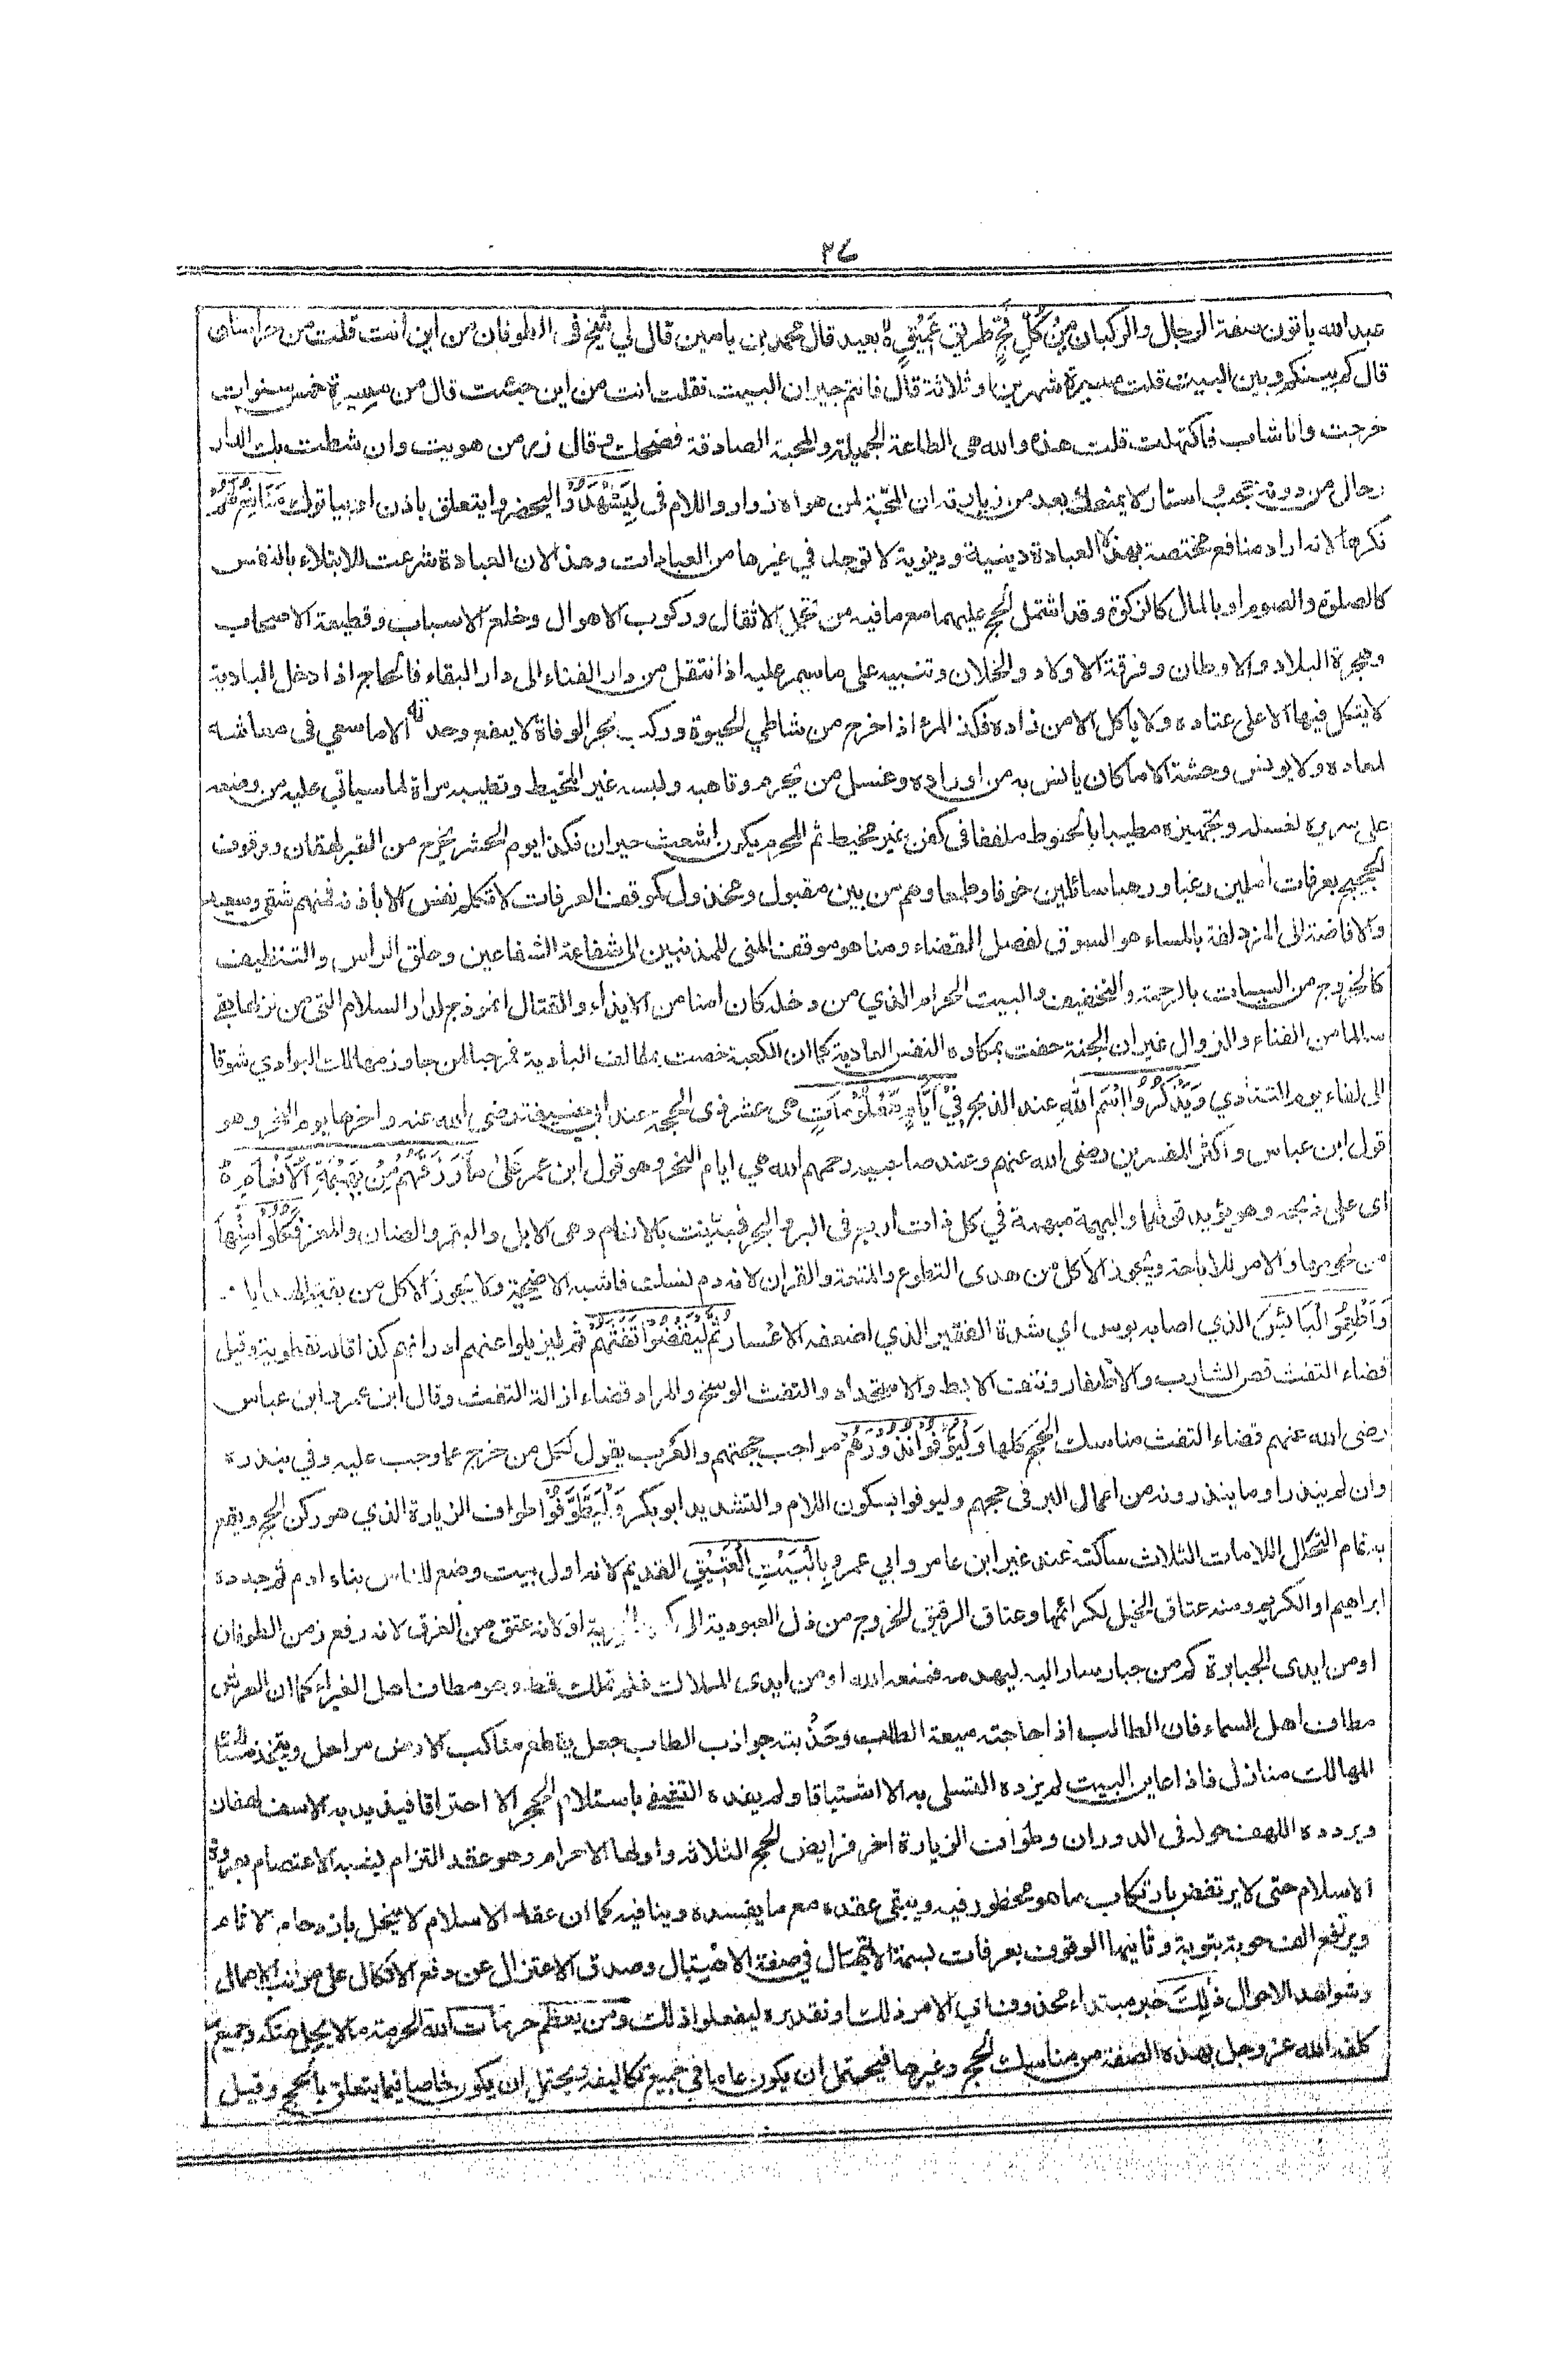 ٣٤
عبد الله ياتون صفة الرجال والركبان مِنْ كُلِّ فَجٍّ طريق عَمِيْقٍ ۝ بعيد قال محمد بن ياسين قال لي شيخ في الطوفان من اين انت قلت من خراسان
قال كم بينكم وبين البيت قلت مسيرة شهرين او ثلاثة قال فانتم جيران البيت فقلت انت من اين جئت قال من مسيرة خمس سنوات
خرجت وانا شاب فاكتهلت قلت هذه والله هى الطاعة الجميلة والمحبة الصادقة فضحك وقال زر من هويت وان شطت بك الدار
وحال من دونه حجب واستار لا يمنعك بعد من زيارته ان المحبّ لمن يهواه زوار واللام فى لِيَشْهَدُوْا ليحضروا يتعلق باذن او بياتوك مَنَافِعَ لَهُمْ
نكرها لانه اراد منافع مختصة بهذه العبادة دينية ودنيوية لا توجد في غيرها من العبادات وهذا لان العبادة شرعت للابتلاء بالنفس
كالصلوة والصوم او بالمال كالزكوة وقد اشتمل الحج عليهما مع ما فيه من تحمل الاثقال وركوب الاهوال وخلع الاسباب وقطيعة الاصحاب
وهجرة البلاد والاوطان وفرقة الاولاد والخلان وتنبيه على ما يستمر عليه اذا انتقل من دار الفناء الى دار البقاء فالحاج اذا دخل البادية
لا يتكل فيها الا على عتاده ولا يأكل الا من زاده فكذا المرأ اذا خرج من شاطي الحيوة وركب بحر الوفاة لا ينفع وحدته الا ما سعي فى معاشه
لمعاده ولا يونس وحشته الا ما كان يانس به من اوراده وغسل من يحرم وتاهبه ولبسه غير المخيط وتطيبه مراة لما سياتي عليه من وضعه
على سريره لغسله وتجهيزه مطيبا بالحنوط ملففا فى كفن غير مخيط ثم المحرم يكون اشعث حيران فكذا يوم الحشر يخرج من القبر لهفان ووقوف
الحجيج بعرفات اٰملين رغبا ورهبا سائلين خوفا وطمعا وهم من بين مقبول ومخذول كموقف العرصات لا تكلم نفس الا باذنه فمنهم شقي وسعيد
والافاضة الى المزدلفة بالمساء هو السوق لفصل القضاء ومنا هو موقف المنى للمذنبين الى شفاعة الشافعين وحلق الراس والتنظيف
كالخروج من السيئات بالرحمة والتخفيف والبيت الحرام الذي من دخله كان امنا من الايذاء والقتال انموذج لدار السلام التى من نزلها بقي
سالما من الفناء والزوال غير ان الجنة حفت بمكاره النفس العادية كما ان الكعبة خصت بمتالف البادية فمرحبا لمن جاوز مهالك البوادي شوقا
الى لقاء يوم التنادي وَيَذْكُرُوا اسْمَ اللهِ عند الذبح فِيْ اَيَّامٍ مَّعْلُوْمَاتٍ هى عشر ذى الحجة عند ابي حنيفة رضى الله عنه واخرها يوم النحر وهو
قول ابن عباس واكثر المفسرين رضى الله عنهم وعند صاحبيه رحمهم الله هي ايام النحر وهو قول ابن عمر عَلٰى مَا رَزَقَهُمْ مِّنْ بَهِيْمَةِ الْاَنْعَامِ ۝
اى على ذبحه وهو يؤيد قولهما والبهيمة مبهمة في كل ذات اربع فى البر والبحر فبينت بالانعام وهى الابل والبقر والضان والمعز فَكُلُوْا مِنْهَا
من لحومها والامر للاباحة ويجوز الاكل من هدى التطوع والمتعة والقران لانه دم نسك فاشبه الاضحية ولا يجوز الاكل من بقية الهدايا
وَاَطْعِمُوا الْبَائِسَ الذي اصابه بوس اي شدة الفقير الذي اضعفه الاعسار ثُمَّ لْيَقْضُوْا تَفَثَهُمْ ثم ليزيلوا عنهم ادرانهم كذا قاله نفطويه وقيل
قضاء التفث قص الشارب والاظفار ونتف الابط والاستحداد والتفث الوسخ والمراد قضاء ازالة التفث وقال ابن عمر وابن عباس
رضى الله عنهم قضاء التفث مناسك الحج كلها وَلْيُوْفُوْا نُذُوْرَهُمْ مواجب حجتهم والعرب يقول لكل من خرج عما وجب عليه وفي بنذره
وان لم ينذر او ما ينذرونه من اعمال البر فى حجهم وليوفوا بسكون اللام والتشديد ابو بكر وَلْيَطَّوَّفُوْا طواف الزيارة الذي هو ركن الحج ويقع
به تمام التحلل اللامات الثلاث ساكنة عند غير ابن عامر وابي عمرو بِالْبَيْتِ الْعَتِيْقِ القديم لانه اول بيت وضع للناس بناء ادم ثم جدده
ابراهيم او الكريم ومنه عتاق الخيل لكرائمها وعتاق الرقيق للخروج من ذل العبودية الى او لانه عتق من الغرق لانه رفع زمن الطوفان
او من ايدى الجبابرة كم من جبار سار اليه ليهدمه فمنعه الله او من ايدى الملاك فلم يملك قط وهو مطاف اهل الغبراء كما ان العرش
مطاف اهل السماء فان الطالب اذا هاجته ميعة الطلب وجذبته جواذب الطلب جعل يقطع مناكب الارض مراحل ويتخذ مسالك
المهالك منازل فاذا عاين البيت لم يزده التسلى به الا اشتياقا ولم يفده التشفي باستلام الحجر الا احتراقا فيذيد به الاسف لهفان
ويردده اللهف حوله فى الدوران وطواف الزيارة اخر فرايض الحج الثلاث واولها الاحرام وهو عقد التزام يشبه الاعتصام بعروة
الاسلام حتى لا يرتفض بارتكاب ما هو محظور فيه ويبقى عقده مع ما يفسده وينافيه كما ان عقد الاسلام لا ينحل بازدحام الاثام
ويرتفع الف حوبة بتوبة وثانيها الوقوف بعرفات بسمة الابتهال في صفة الاهتبال وصدق الاعتزال عن دفع الاتكال على مراتب الاعمال
وشواهد الاحوال ذٰلِكَ خبر مبتداء محذوف اي الامر ذلك او تقديره ليفعلوا ذلك ومن يعظم حرمات الله الحرمة ما لا يحل هتكه وجميع ما
كلفه الله عز وجل بهذه الصفة من مناسك الحج وغيرها فيحتمل ان يكون عاما في جميع تكاليفه ويحتمل ان يكون خاصا فيما يتعلق بالحج وقيل